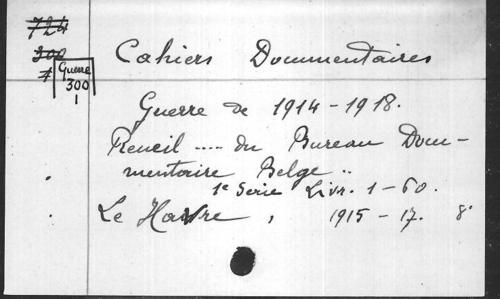 724
300
1
Guerre
300
1
Cahiers Documentaires
Guerre de 1914-1918.
Recueil .... du Bureau Docu-
mentaire Belge ..
1e Serie Livr. 1-60.
Le Havre, 1915-17. 8°